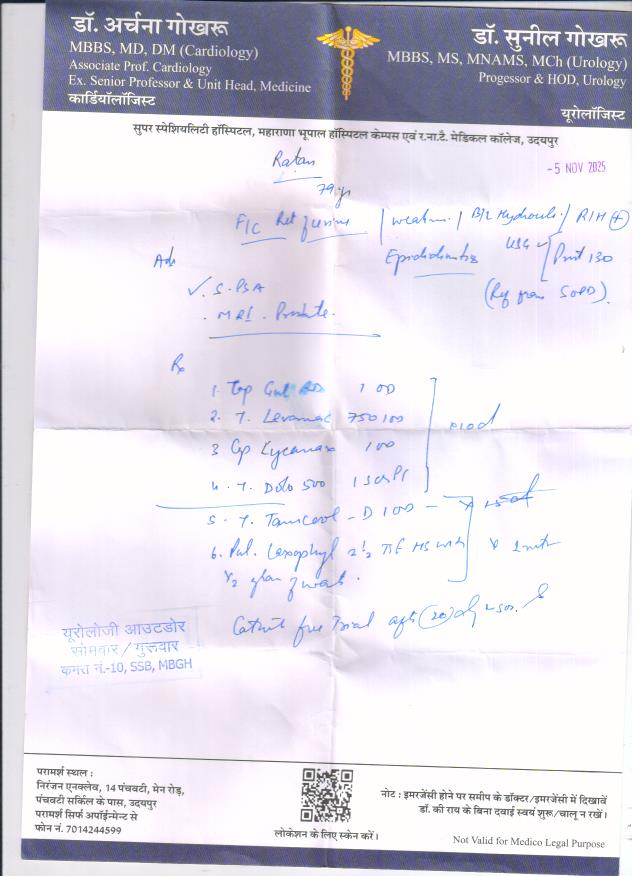 डॉ. अर्चना गोखरू
MBBS, MD, DM (Cardiology)
Associate Prof. Cardiology
Ex. Senior Professor & Unit Head, Medicine
कार्डियॉलॉजिस्ट
डॉ. सुनील गोखरू
MBBS, MS, MNAMS, MCh (Urology)
Progessor & HOD, Urology
यूरोलॉजिस्ट
सुपर स्पेशियलिटी हॉस्पिटल, महाराणा भूपाल हॉस्पिटल केम्पस एवं र.ना.टै. मेडिकल कॉलेज, उदयपुर
Ratan
-5 NOV 2025
79 yr
F/C Ret of urine / / B/L Hydrocele / RIH (+)
USG
Prost 130
Adv
(Ref from SOPD).
✓ . S. PSA
. MRI . Prostate.
Rx
1. Cap 1 OD
2. T. Levomac 750 1 OD
3 Cap 1 OD
4. T. Dolo 500 1 SOS
5. T. - D 1 OD -
6. Pul. 2 1/2 TSF HS with
1/2 glass of water.
Catheter free Trial after (20) days
यूरोलोजी आउटडोर
सोमवार / गुरूवार
कमरा नं.-10, SSB, MBGH
परामर्श स्थल :
निरंजन एनक्लेव, 14 पंचवटी, मेन रोड़,
पंचवटी सर्किल के पास, उदयपुर
परामर्श सिर्फ अपॉईन्मेन्ट से
फोन नं. 7014244599
लोकेशन के लिए स्केन करें।
नोट : इमरजेंसी होने पर समीप के डॉक्टर/इमरजेंसी में दिखावें
डॉ. की राय के बिना दवाई स्वयं शुरू/चालू न रखें।
Not Valid for Medico Legal Purpose